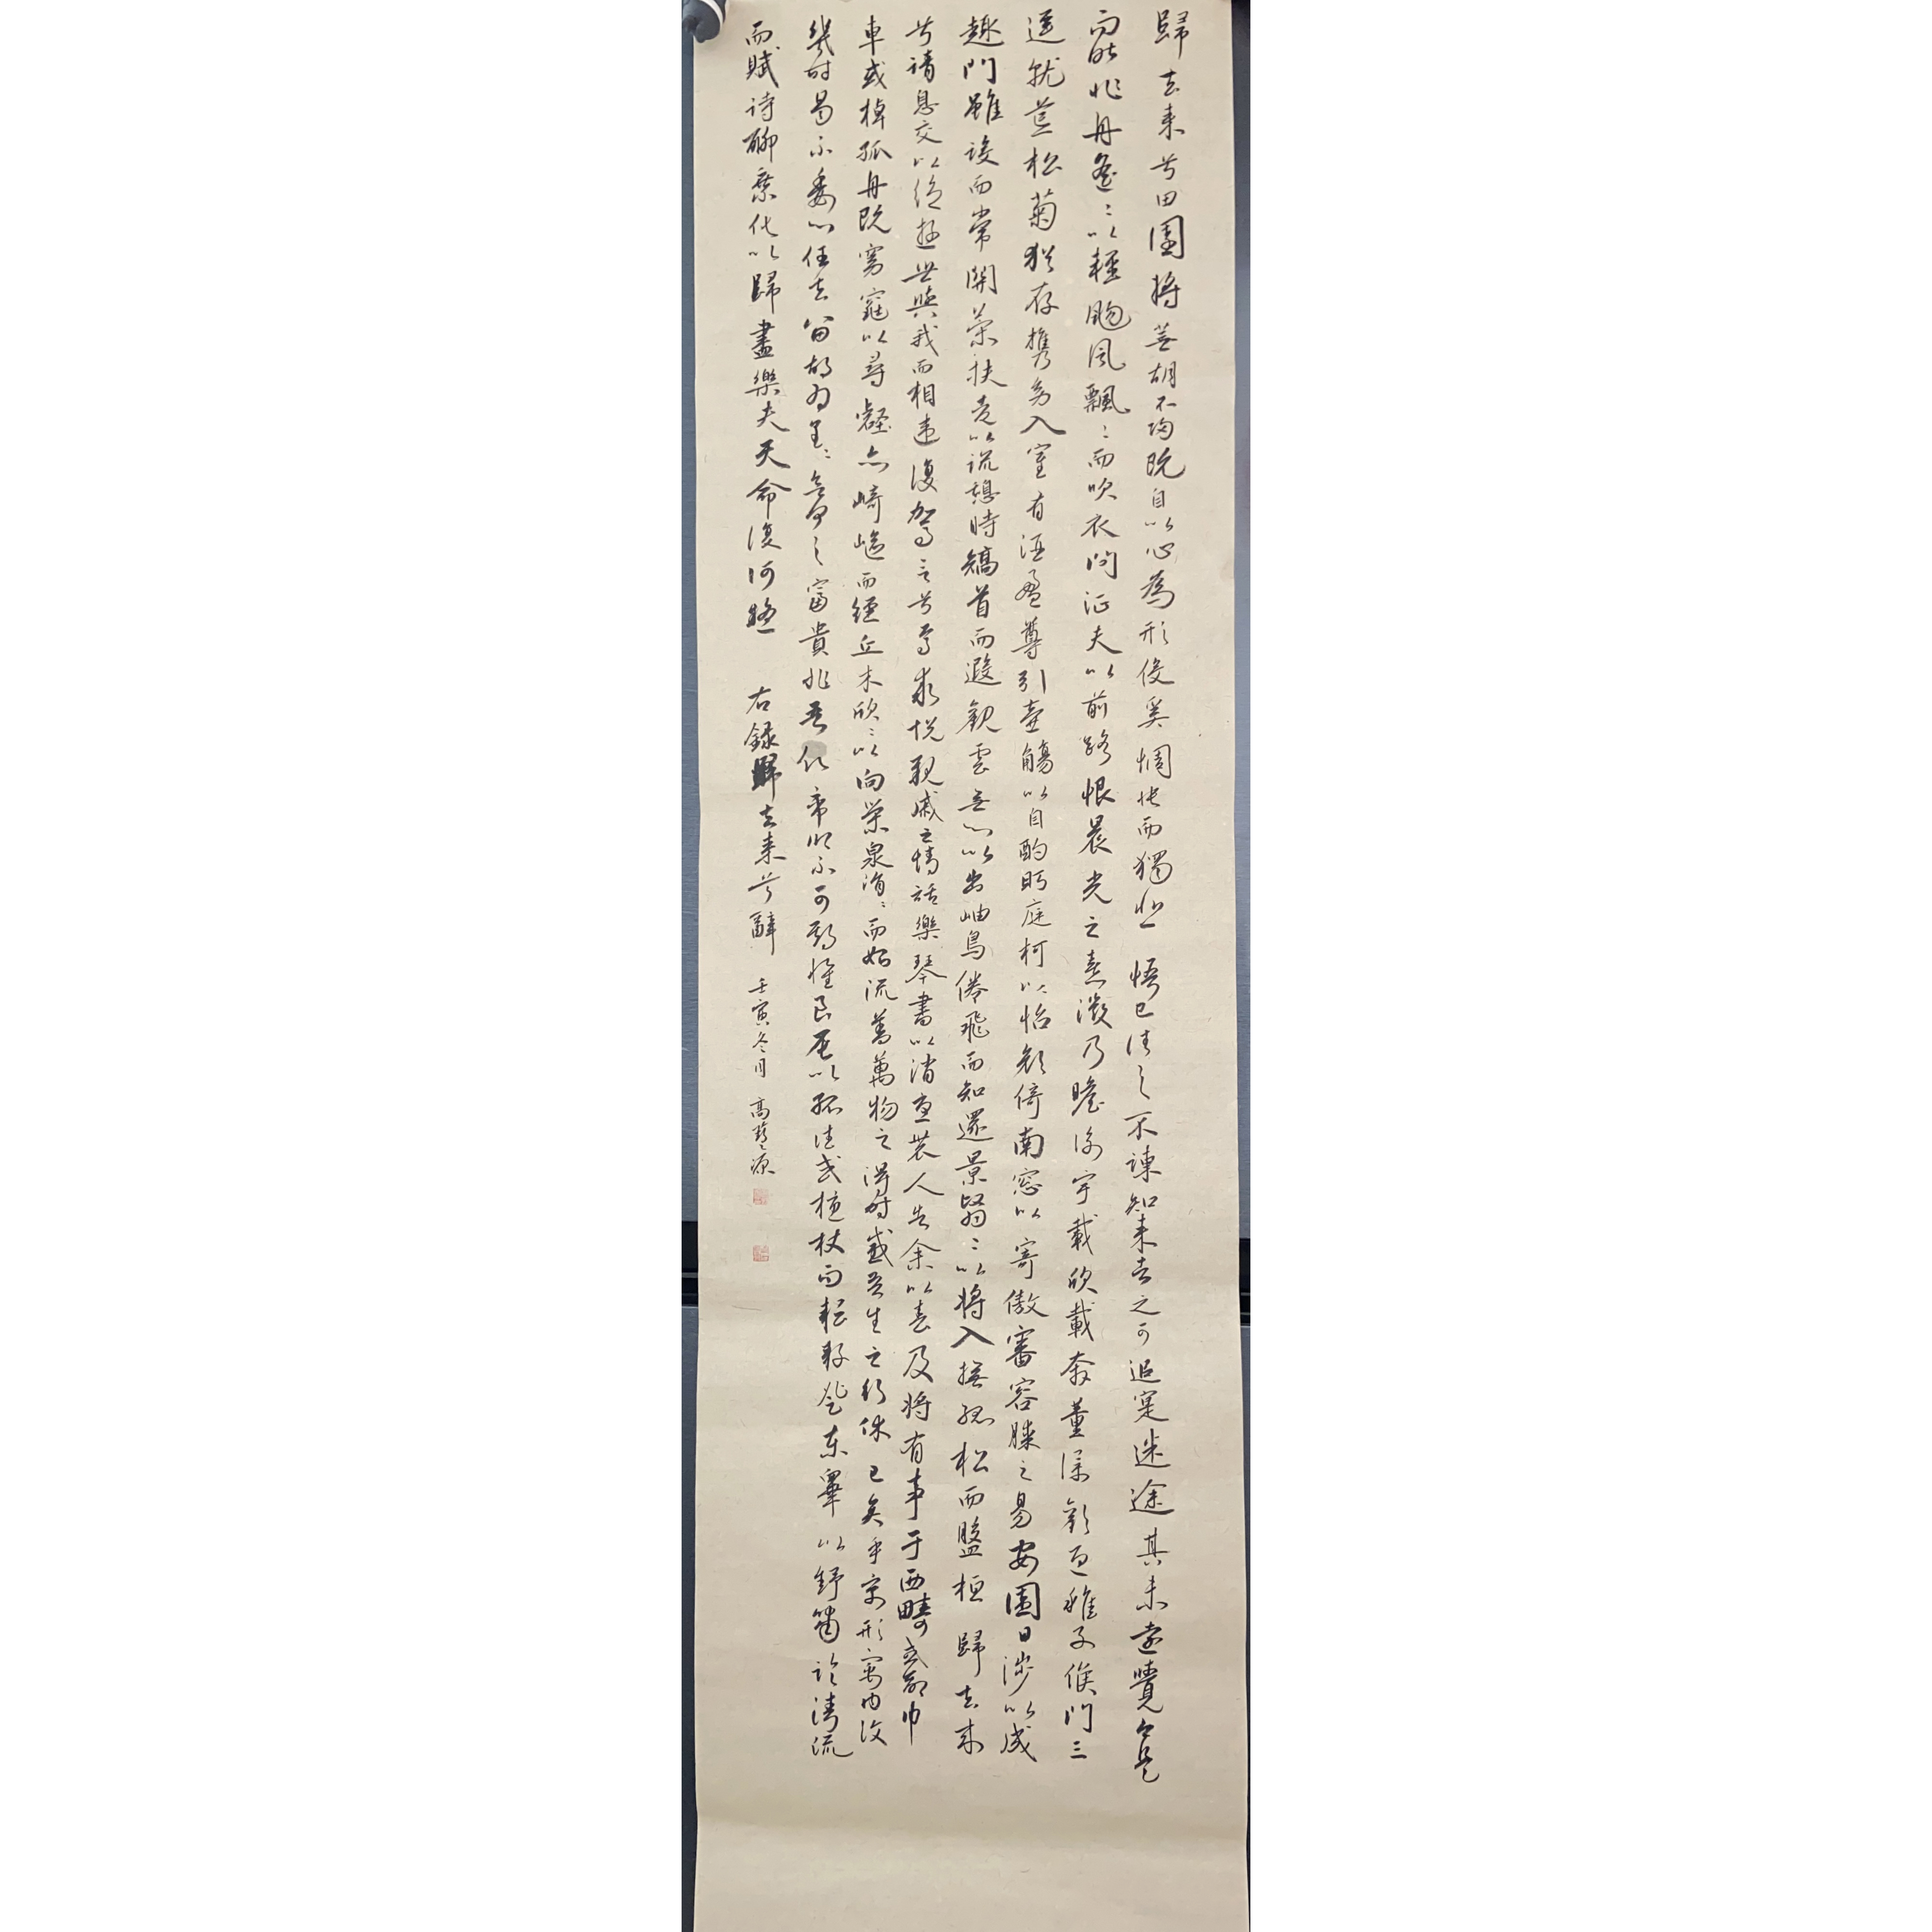 歸去来兮田園將蕪胡不歸既自以心為形役奚惆悵而獨悲 悟已往之不諫知来者之可追寔迷途其未遠覺今是
而昨非舟遙々以輕颺風飄々而吹衣問征夫以前路恨晨光之熹微乃瞻衡宇載欣載奔童僕歡迎稚子候門三
逕就荒松菊猶存攜幼入室有酒盈尊引壺觴以自酌眄庭柯以怡顏倚南窓以寄傲審容膝之易安園日涉以成
趣門雖設而常關策扶老以流憩時矯首而遐觀雲無心以出岫鳥倦飛而知還景翳々以將入撫孤松而盤桓 歸去来
兮請息交以絕遊世與我而相違復駕言兮焉求悅親戚之情話樂琴書以消憂農人告余以春及將有事于西疇或命巾
車或棹孤舟既窈窕以尋壑亦崎嶇而經丘木欣々以向榮泉涓々而始流善萬物之得時感吾生之行休 已矣乎寓形寓内復
幾時曷不委心任去留胡為皇々欲何之富貴非吾願帝鄉不可期懷良辰以孤往或植杖而耘耔登東皋以舒嘯臨清流
而賦诗聊乘化以歸盡樂夫天命復何疑 右録歸去来兮辭 壬寅冬月 高 源